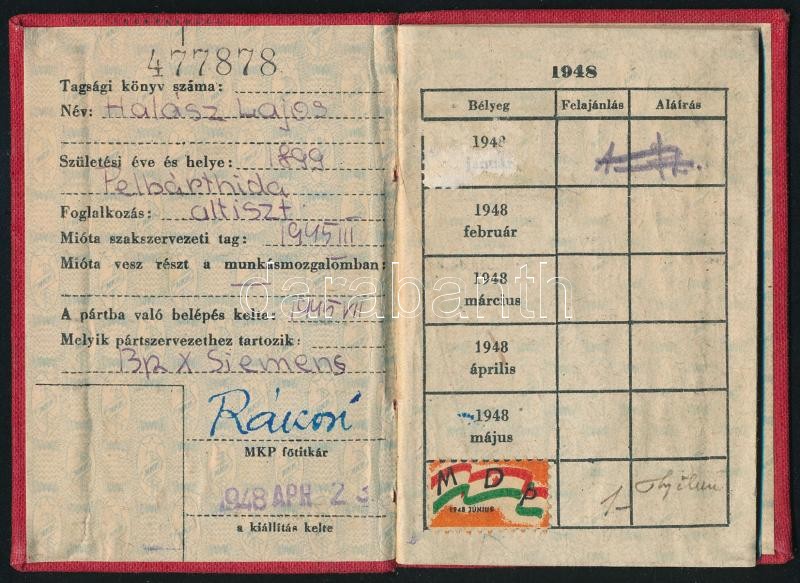 477878
Tagsági könyv száma:
Név: Halász Lajos
Születési éve és helye: 1899
Pelbárthida
Foglalkozás: altiszt
Mióta szakszervezeti tag: 1945 III
Mióta vesz részt a munkásmozgalomban:
—
A pártba való belépés kelte: 1945 VII
Melyik pártszervezethez tartozik:
Bp X Siemens
Rákosi
MKP főtitkár
1948 APR 23
a kiállítás kelte
1948
Bélyeg Felajánlás Aláírás
1948
január
1948
február
1948
március
1948
április
1948
május
MDP
1948 JUNIUS
1-
darabanth